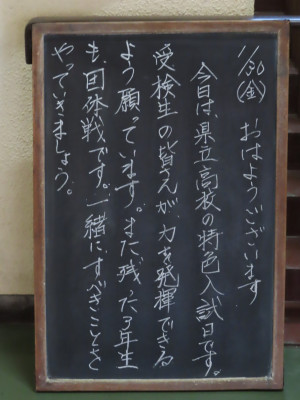 1/30(金) おはようございます
今日は、県立高校の特色入試日です。
受検生の皆さんが、力を発揮できる
よう願っています。また残った3年生
も、団体戦です。一緒に、すべきことを
やっていきましょう。